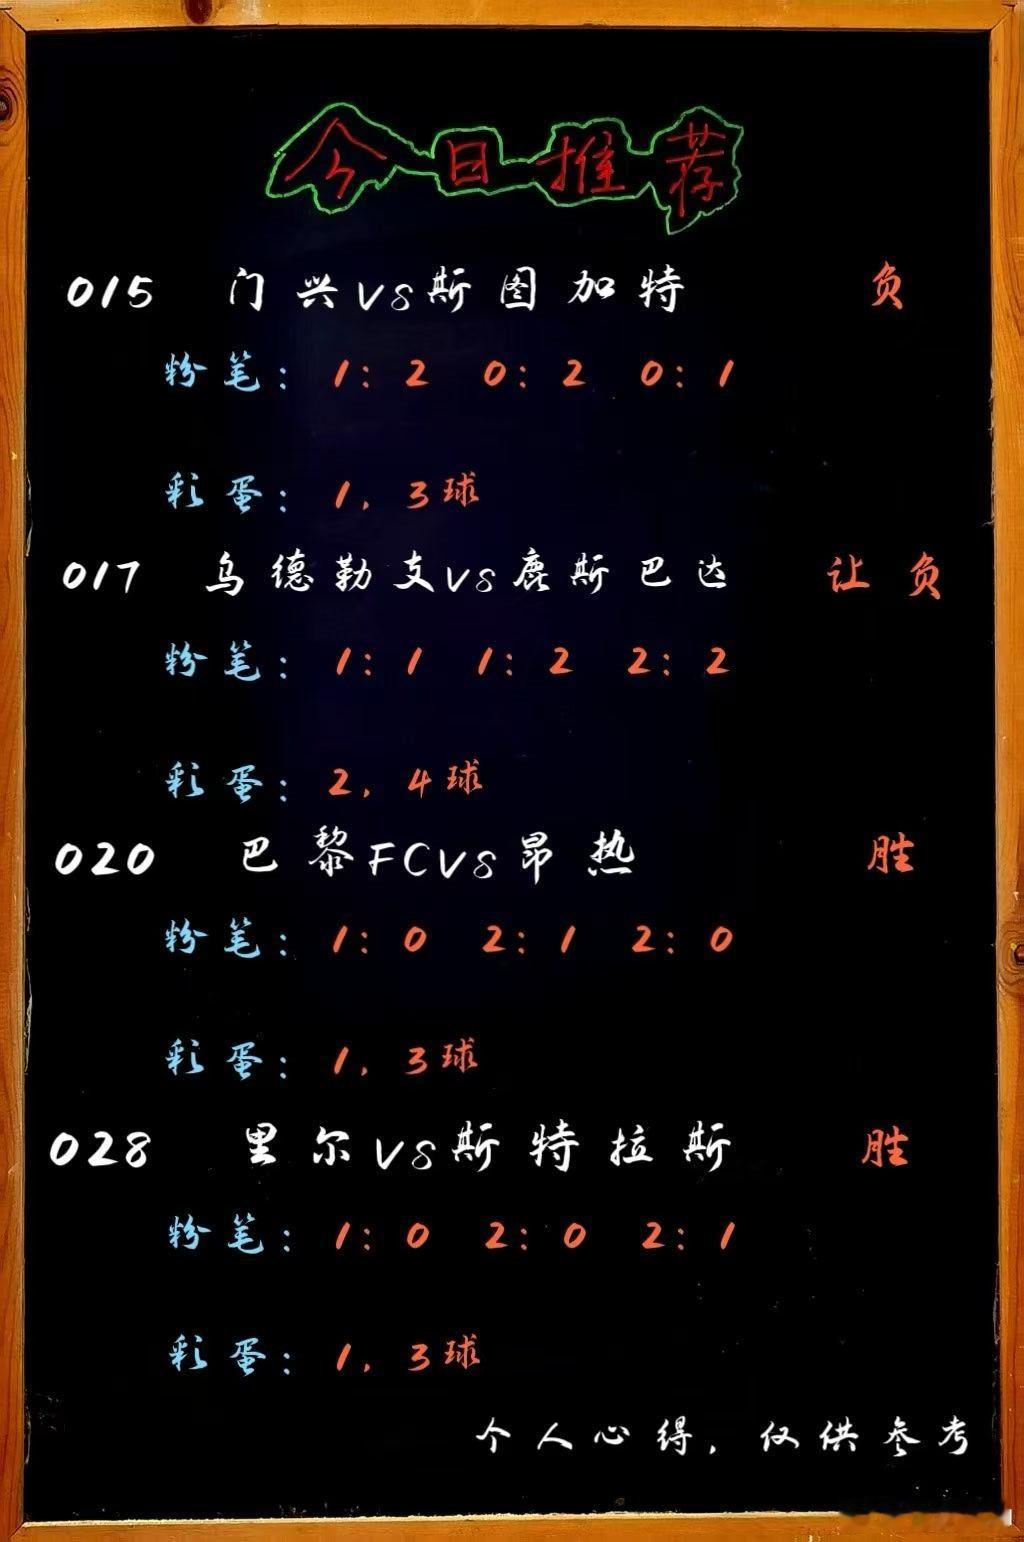 今日推荐
015 门兴vs斯图加特 负
粉笔: 1:2 0:2 0:1
彩蛋: 1,3球
017 乌德勒支vs鹿斯巴达 让负
粉笔: 1:1 1:2 2:2
彩蛋: 2,4球
020 巴黎FCVs昂热 胜
粉笔: 1:0 2:1 2:0
彩蛋: 1,3球
028 里尔vs斯特拉斯 胜
粉笔: 1:0 2:0 2:1
彩蛋: 1,3球
个人心得,仅供参考